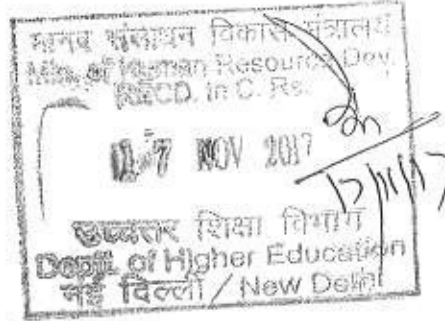 मानव संसाधन विकास मंत्रालय
Min. of Human Resource Dev.
RECD. in C. Rs.
07 NOV 2017
17/11/17
उच्चतर शिक्षा विभाग
Deptt. of Higher Education
नई दिल्ली / New Delhi